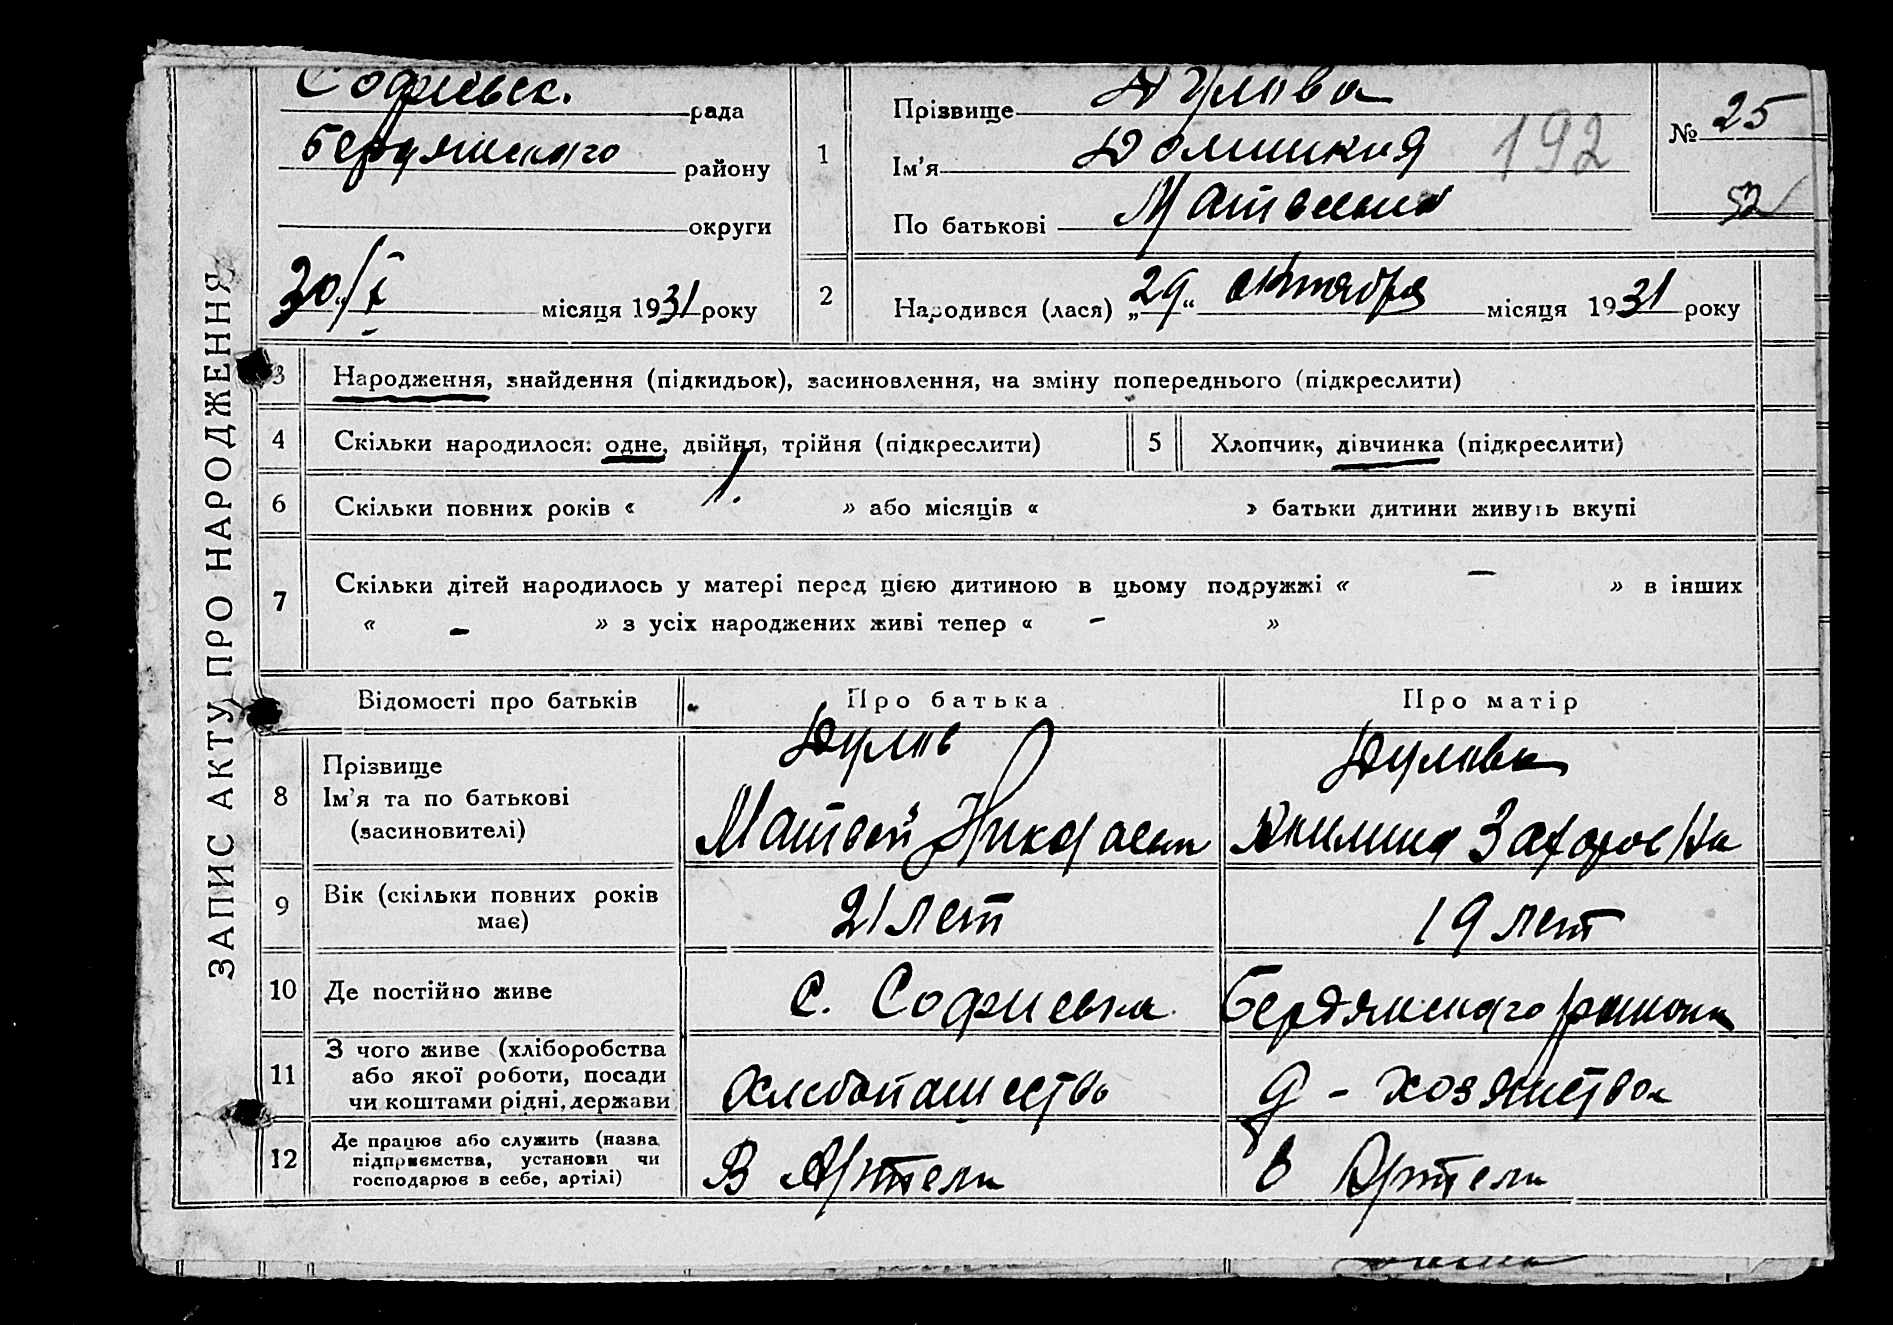 ЗАПИС АКТУ ПРО НАРОДЖЕННЯ
Софиевск. рада
Бердянского району
округи
30/X місяця 1931 року
1
Прізвище Дулова
Ім'я Домникия
192
По батькові Матвеевна
№ 25
52
2
Народився (лася) „29“ октября місяця 1931 року
3 Народження, знайдення (підкидьок), засиновлення, на зміну попереднього (підкреслити)
4 Скільки народилося: одне, двійня, трійня (підкреслити)
5 Хлопчик, дівчинка (підкреслити)
6 Скільки повних років « 1. » або місяців « » батьки дитини живуть вкупі
7 Скільки дітей народилось у матері перед цією дитиною в цьому подружжі « – » в інших
« – » з усіх народжених живі тепер « – »
Відомості про батьків Про батька Про матір
8 Прізвище
Ім'я та по батькові
(засновителі)
Дулов
Матвей Николаевич
Дулова
Захаровна
9 Вік (скільки повних років
має)
21 лет
19 лет
10 Де постійно живе
с. Софиевка Бердянского района
11 З чого живе (хліборобства
або якої роботи, посади
чи коштами рідні, держави
Хлебопашество
д - хозяйства
12 Де працює або служить (назва
підприємства, установи чи
господарює в себе, артілі)
В Артели
в Артели